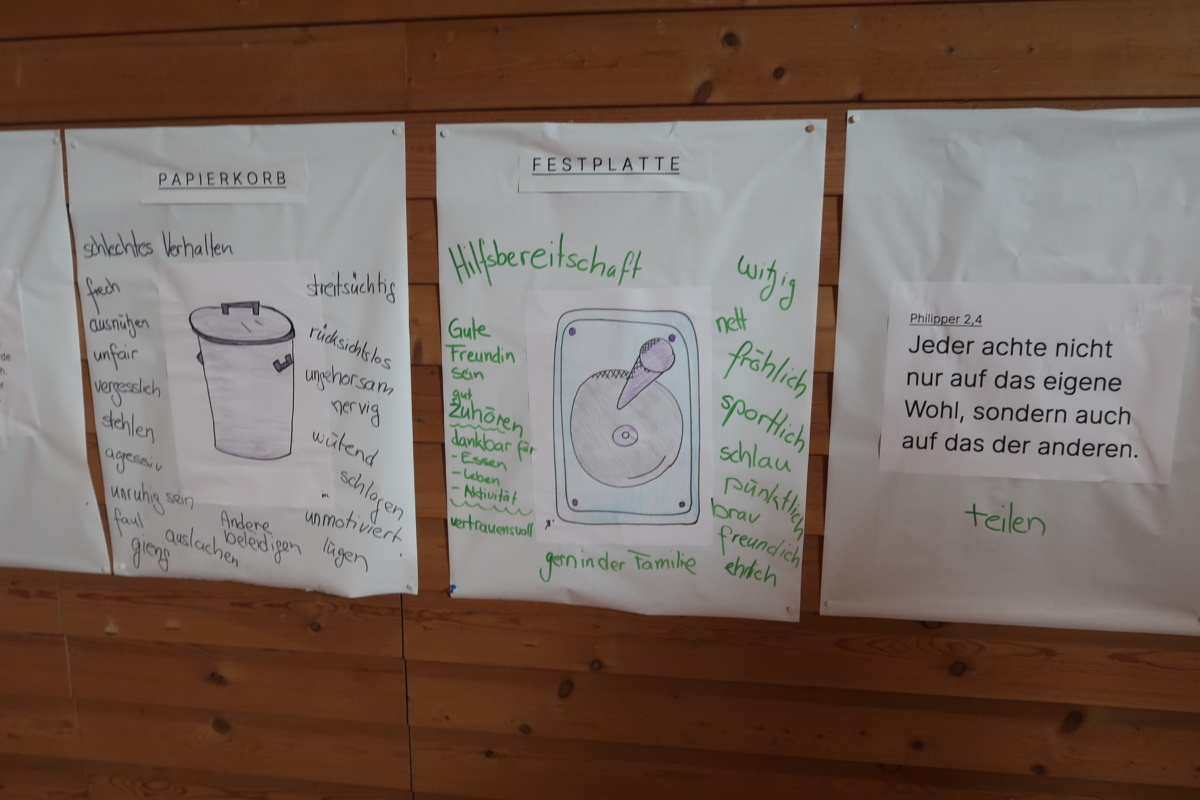 PAPIERKORB
schlechtes Verhalten
frech
ausnützen
unfair
vergesslich
stehlen
agressiv
unruhig sein
faul
gieng
auslachen
Andere
beleidigen
streitsüchtig
rücksichtslos
ungehorsam
nervig
wütend
schlagen
unmotiviert
lügen
FESTPLATTE
Hilfsbereitschaft
Gute
Freundin
sein
gut
Zuhören
dankbar für
- Essen
- Leben
- Aktivität
vertrauensvoll
gern in der Familie
witzig
nett
fröhlich
sportlich
schlau
pünktlich
brav
freundich
ehrlich
Philipper 2,4
Jeder achte nicht
nur auf das eigene
Wohl, sondern auch
auf das der anderen.
teilen